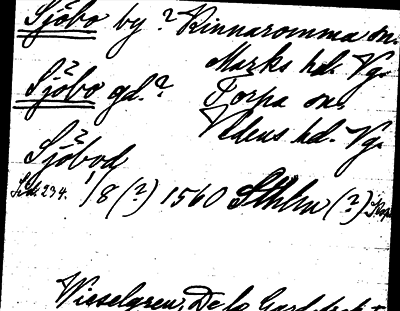 Sjöbo by? Kinnaromma sn.
Marks hd. Vg.
Sjöbo gd.? Torpa sn.
Vedens hd. Vg.
Sjöbod
234. 18(?) 1560 Sthlm (?)
Wieselgren, De la Gard.